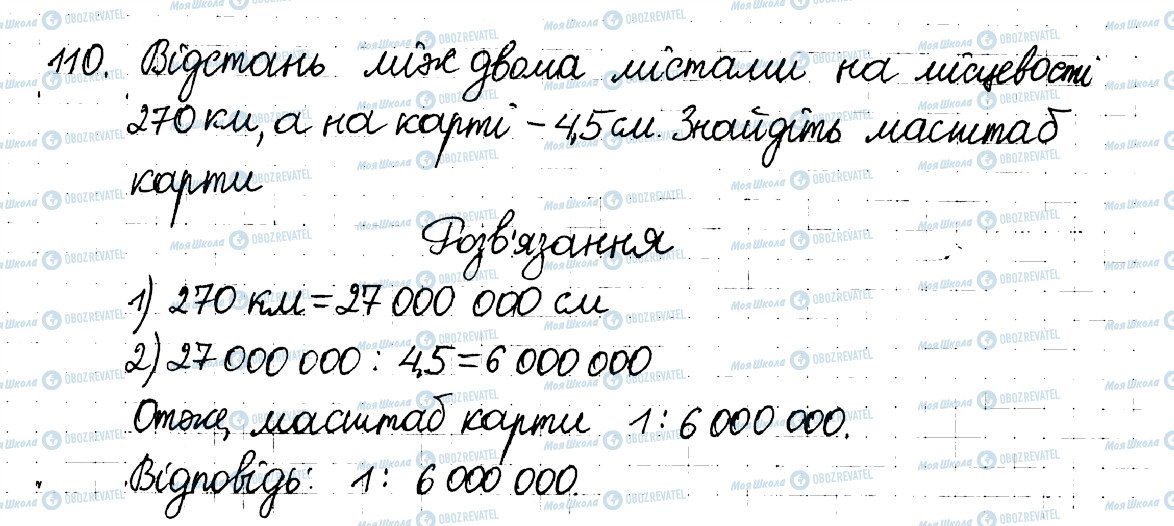 110. Відстань між двома містами на місцевості
270 км, а на карті – 4,5 см. Знайдіть масштаб
карти
Розв'язання
1) 270 км = 27 000 000 см
2) 27 000 000 : 4,5 = 6 000 000
Отже, масштаб карти 1 : 6 000 000.
Відповідь: 1 : 6 000 000.
МояШкола OBOZREVATEL